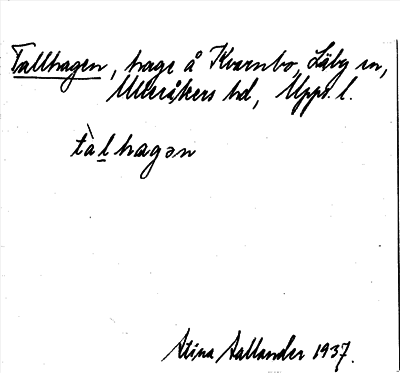 Tallhagen, hage å Kvarnbo, Läby sn,
Ulleråkers hd, Upps. l.
tàl hagən
Stina Sallander 1937.